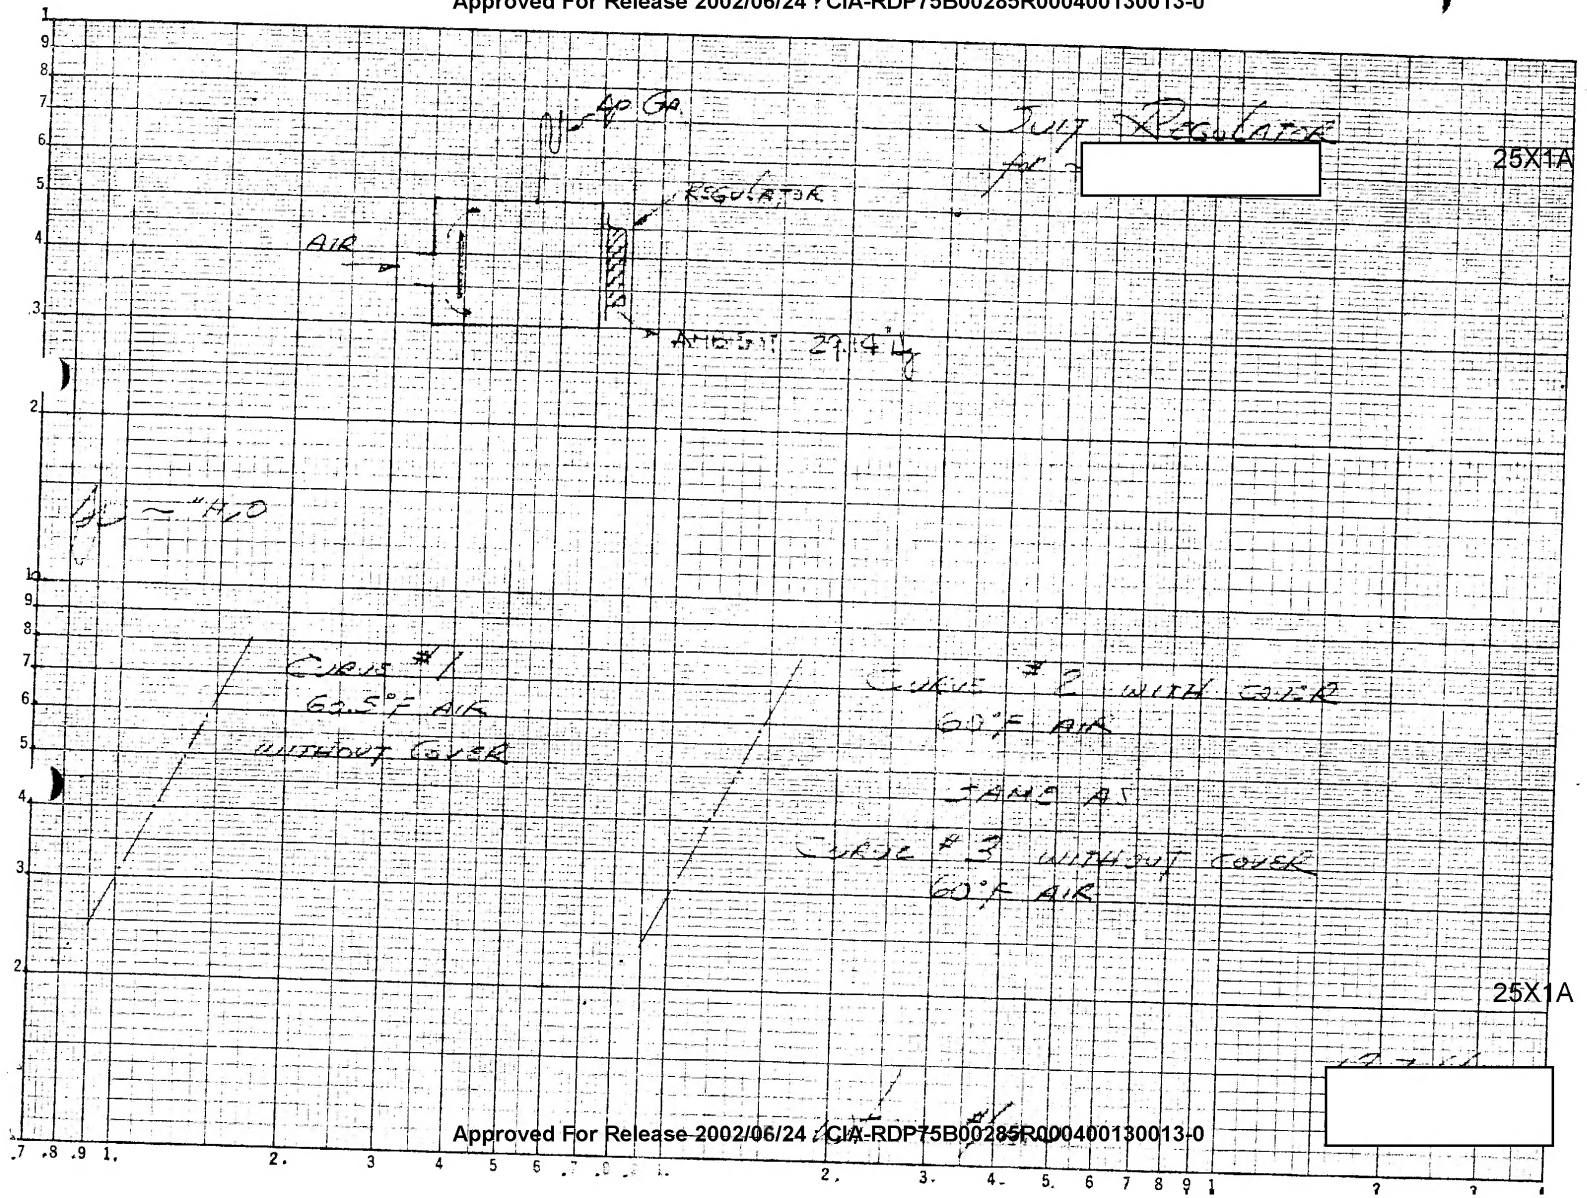 Approved For Release 2002/06/24 : CIA-RDP75B00285R000400130013-0
Suit Regulator
for
25X1A
Δp Ga.
REGULATOR
AIR
AMBIENT 29.14 "Hg
Δp ~ "H2O
CURVE #1
60.5°F AIR
WITHOUT COVER
CURVE #2 WITH COVER
60°F AIR
SAME AS
CURVE #3 WITHOUT COVER
60°F AIR
25X1A
#1
Approved For Release 2002/06/24 : CIA-RDP75B00285R000400130013-0
1
9
8
7
6
5
4
.3
2
10
9
8
7
6
5
4
3
2
.7 .8 .9 1. 2. 3 4 5 6 .7 .8 .9 1. 2. 3. 4. 5. 6 7 8 9 1 2 3